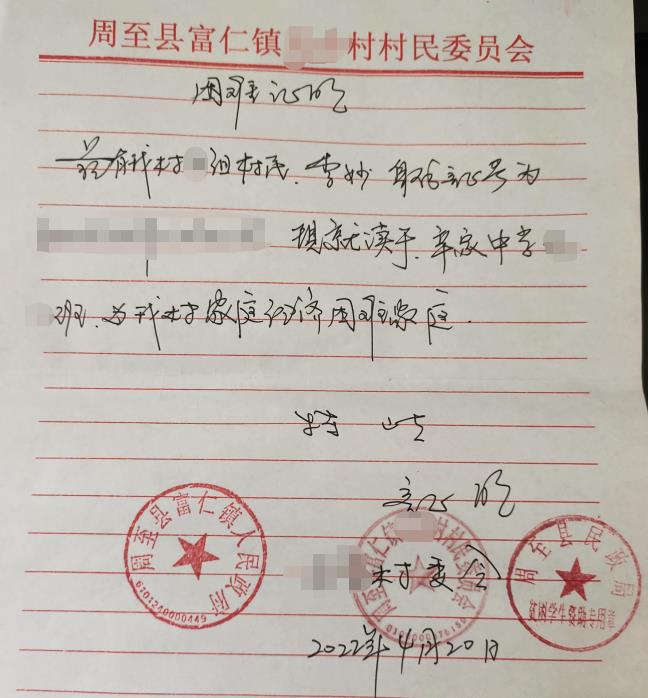 周至县富仁镇 村村民委员会
困难证明
兹有我村 组村民.李妙 身份证号为
现就读于.辛家中学
班.为我村家庭经济困难家庭.
特此
证明
村委会
2022年4月20日
周至县富仁镇人民政府
6101240000449
周至县富仁镇 村村民委员会
周至县民政局
贫困学生资助专用章